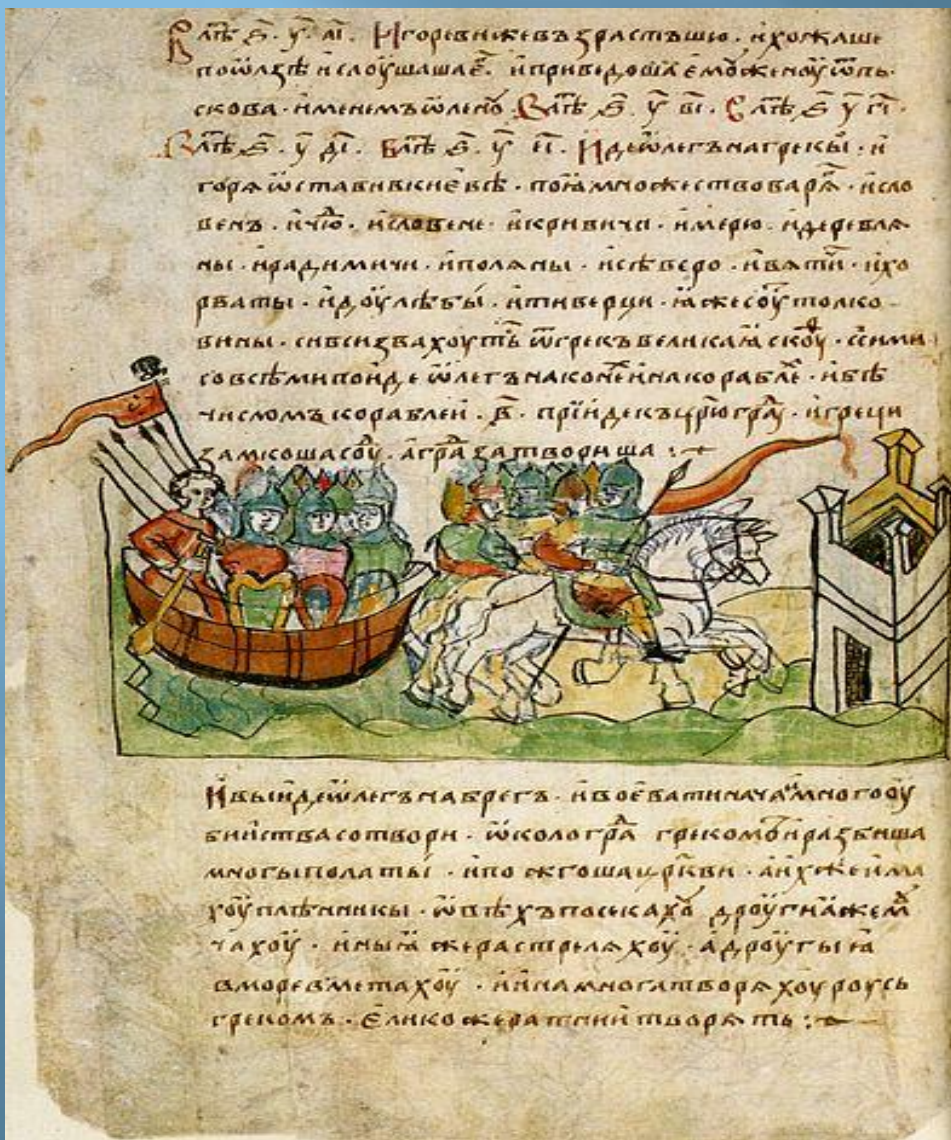 В лѣⷮ ҂ѕ҃. у҃. аı҃. Игоревиже възрастъшю. ихожаше
поѡлзѣ ислоушаше е҃. иприведоша ємоу женоу ѿпь
скова. именемъ ѡленоу. В лѣⷮ ҂ѕ҃. у҃. вı҃. В лѣⷮ ҂ѕ҃ у҃ гı҃.
В лѣⷮ ҂ѕ҃. у҃ дı҃. В лѣⷮ ҂ѕ҃. у҃. еı҃. Иде ѡлегъ на грекы. и
горѧ ѡставивъ киевѣ. поıа множество варѧ. исло
венъ. ичю. исловене. икривичи. имерю. идеревлѧ
ны. ирадимичи. иполѧны. исѣверо. ивѧти. ихо
рваты. идоулѣбы. итиверци. ıаже соу толко
вины. сивси звахоуть ѿ грекъ великаıа скоу. ссими
совсѣми поиде ѡлегъ на конеи на кораблѣ. ибѣ
числомъ кораблеи. в҃. приидекъ црюгра. игреци
замкоша соу. агра затвориша
Ивыиде ѡлегъ на брегъ. ивоевати нача. имного оу
биıства сотвори. ѡколо гра грекомъ. иразбиша
многы полаты. ипожгоша церкви. аихже има
хоу плѣнникы. ѡвѣхъ посекахоу дроугиıа же моу
чахоу. иныıа же растрелѧхоу. адроугыıа
вморе вметахоу. иина многа творѧхоу роусь
грекомъ. елико же ратнии творѧть